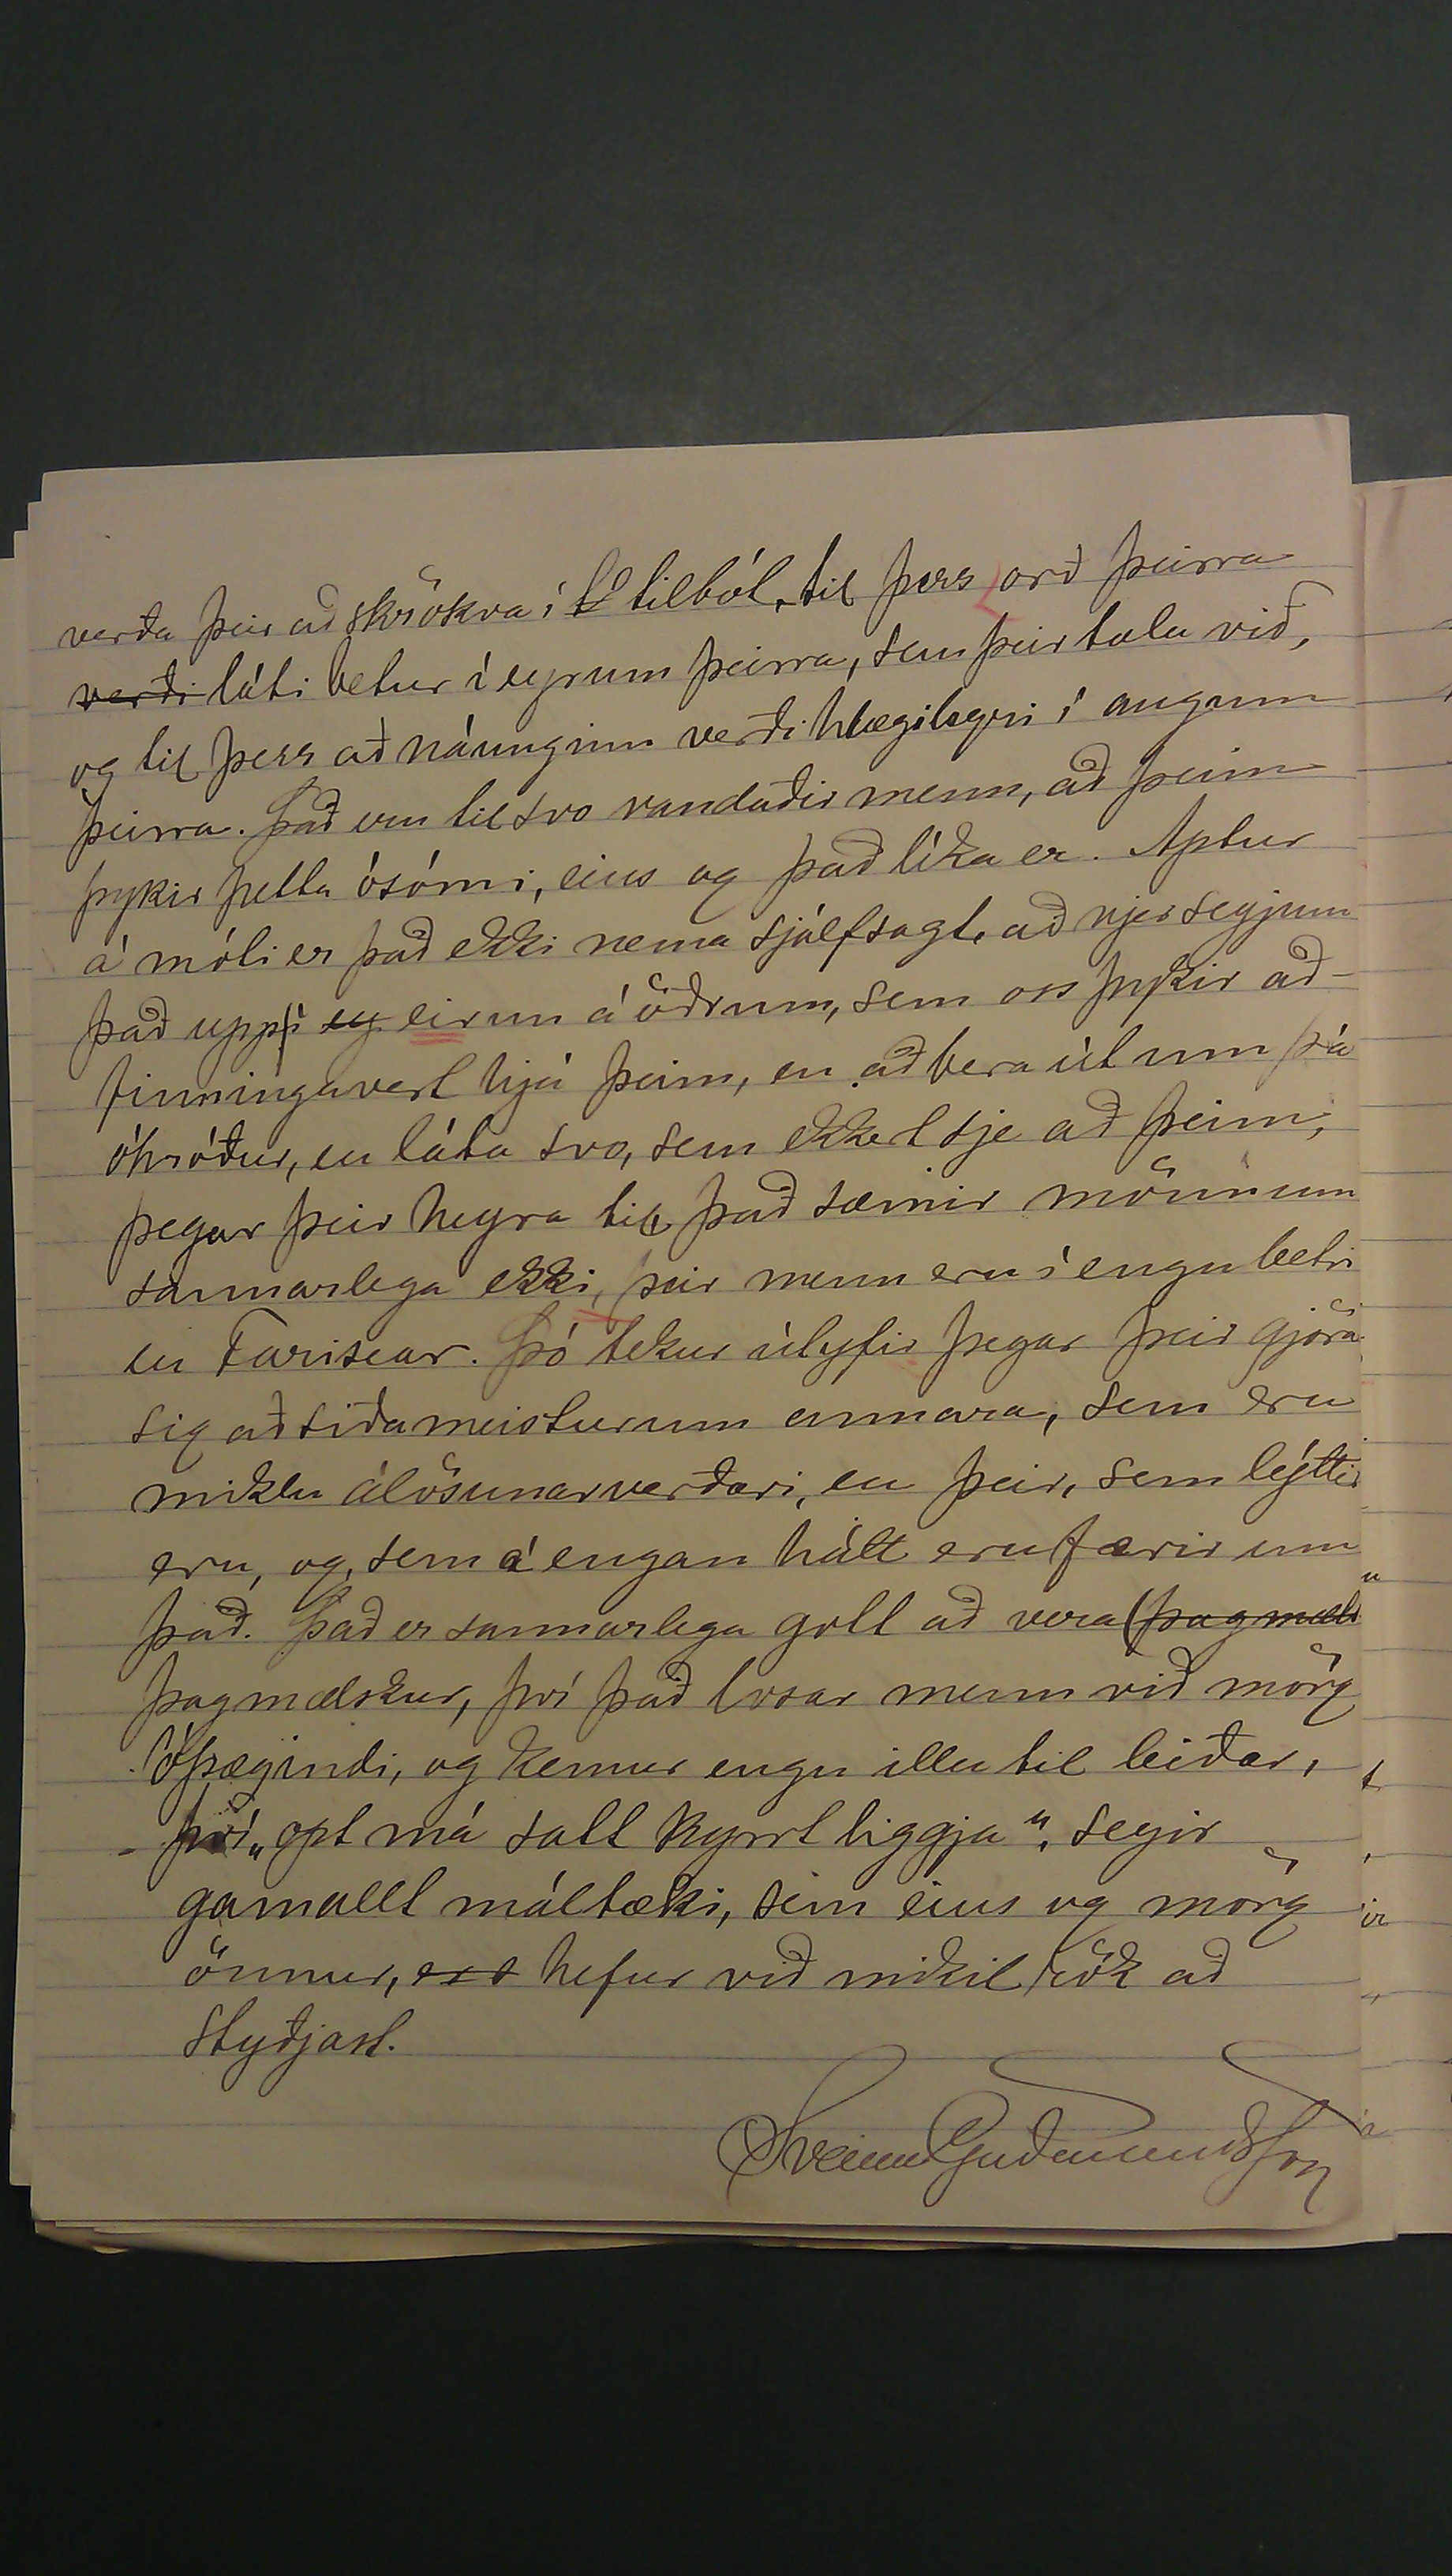 verða þeir að skrökva í til tilbót, til þess orð þeirra
verði láti betur í eyrum þeirra, sem þeir tala við,
og til þess að náunginn verði hlægilegri í augum
þeirra. Það eru til svo vandaðir menn, að þeim
þykir þetta ósómi, eins og það líka er. Aptur
á móti er það ekki nema sjálfsagt, að vjer segjum
það upp í ey eirun á öðrum, sem oss þykir að-
finningavert hjá þeim, en að bera út um þá
óhróður, en láta svo, sem ekkert sje að þeim,
þegar þeir heyra til, það sæmir mönnum
sannarlega ekki, þeir menn eru í engu betri
en Farisear. Þó tekur útyfir þegar þeir gjöra
sig að siðameisturum annara, sem eru
miklu álösunarverðari, en þeir, sem lýttir
eru, og, sem á engan hátt eru færir um
það. Það er sannarlega gott að vera (þagmæls
þagmælskur, því það losar menn við mörg
óþægindi, og kemur engu illu til leiðar,
því „opt má satt kyrrt liggja“, segir
gamallt máltæki, sem eins og mörg
önnur, hefur við mikil rök að
styðjast.
Sveinn Guðmundsson